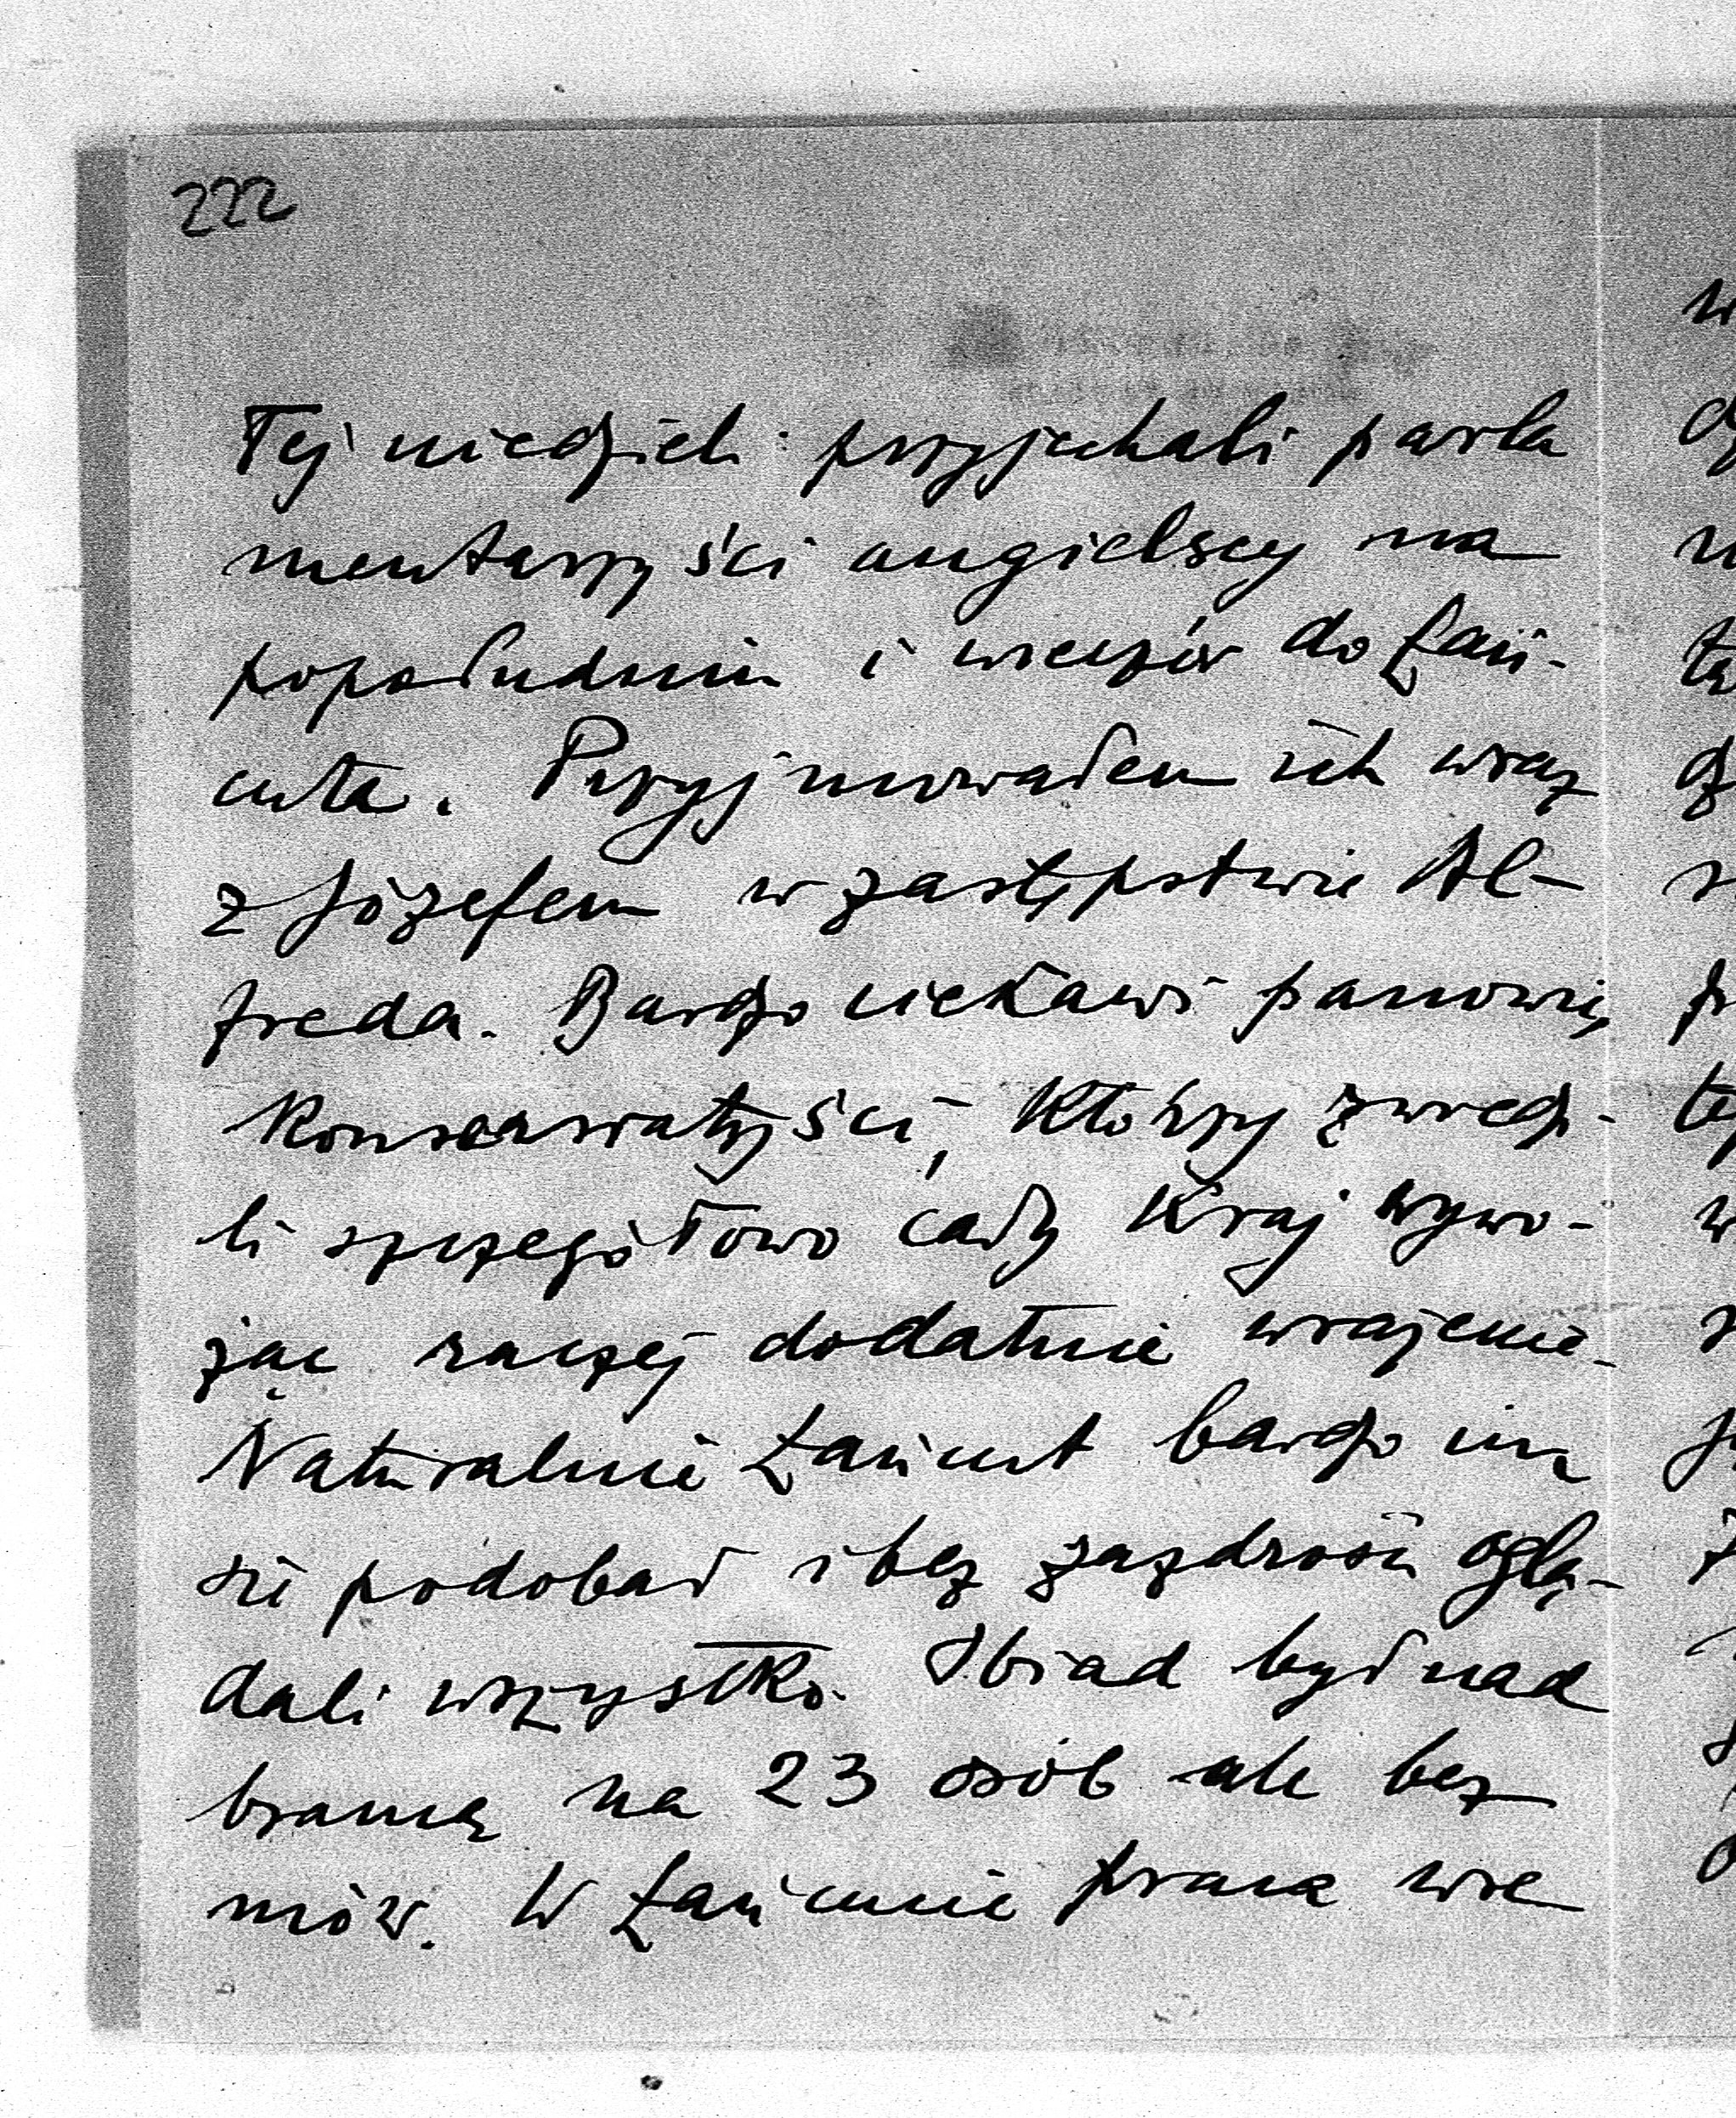 222
Tej niedzieli przyjechali parla
mentarzyści angielscy na
popołudniu i wieczór do Łań-
cuta. Przyjmowałem ich wraz
z Józefem w zastępstwie Al-
freda. Bardzo ciekawi panowie,
konserwatyści, którzy zwiedzi-
li szczegółowo cały kraj wywo-
żąc raczej dodatnie wrażenie.
Naturalnie Łańcut bardzo im
się podobał i bez zazdrości oglą-
dali wszystko. Obiad był nad
bramą na 23 osób ale bez
mów. W Łańcucie praca wre